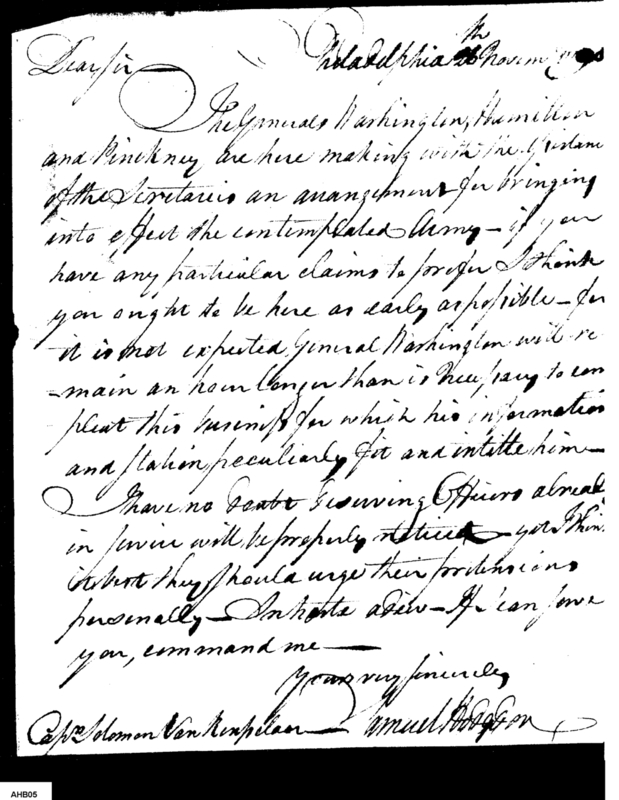 Philadelphia 26th Novem
Dear Sir
The Generals Washington, Hamilton
and Pinckney are here making with the
of the Secretaries an arrangement for bringing
into effect the contemplated Army – if you
have any particular claims to prefer I think
you ought to be here as early as possible – for
it is not expected General Washington will re
-main an hour longer than is necessary to com
pleat this business for which his information
and station peculiarly fit and intitle him –
I have no doubt deserving Officers alread
in service will be properly noticed – yet I thin
it best they should urge their pretensions
personally – In haste adieu – If I can serve
you, command me –
Your very sincerely
Samuel Hodgdon
Capn. Solomon Van Renselaer
AHB05